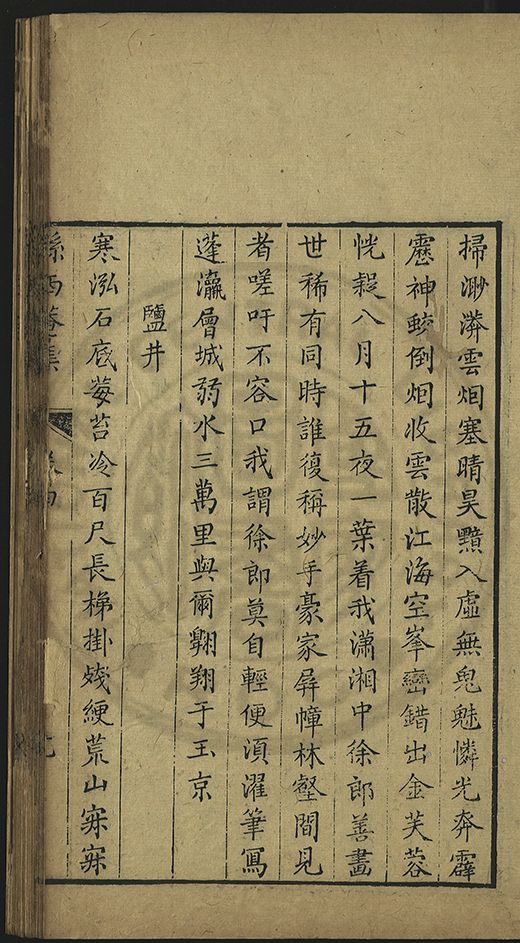 掃渺漭雲烟塞晴昊黯入虛無鬼魅憐光奔霹
靂神蛟倒烟收雲散江海空峯巒錯出金芙蓉
恍疑八月十五夜一葉着我瀟湘中徐郎善畫
世稀有同時誰復稱妙手豪家屏幛林壑間見
者嗟吁不容口我謂徐郎莫自輕便湏濯筆寫
蓬瀛層城弱水三萬里與爾翺翔于玉京
鹽井
寒泓石底莓苔冷百尺長梯掛殘綆荒山寂寂
孫西菴集